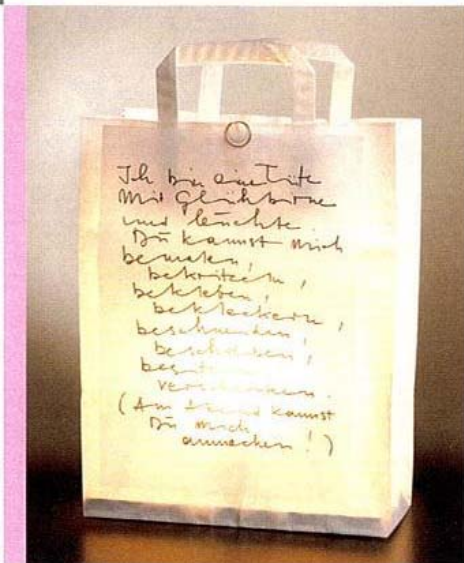 Ich bin eine Tüte
mit Glühbirne
und leuchte.
Du kannst mich
bemalen,
bekritzeln,
bekleben,
bekleckern,
beschneiden,
beschreiben,
verschenken.
(Am Abend kannst
Du mich
anmachen!)